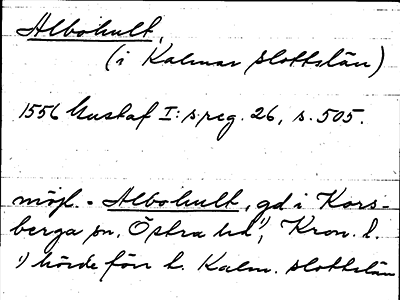 Albohult,
(i Kalmar slottslän)
1556 Gustaf I:s reg. 26, s. 505.
möjl. = Albohult, gd i Kors-
berga sn, Östra hd¹⁾, Kron. l.
¹⁾ hörde förr t. Kalm. slottslän